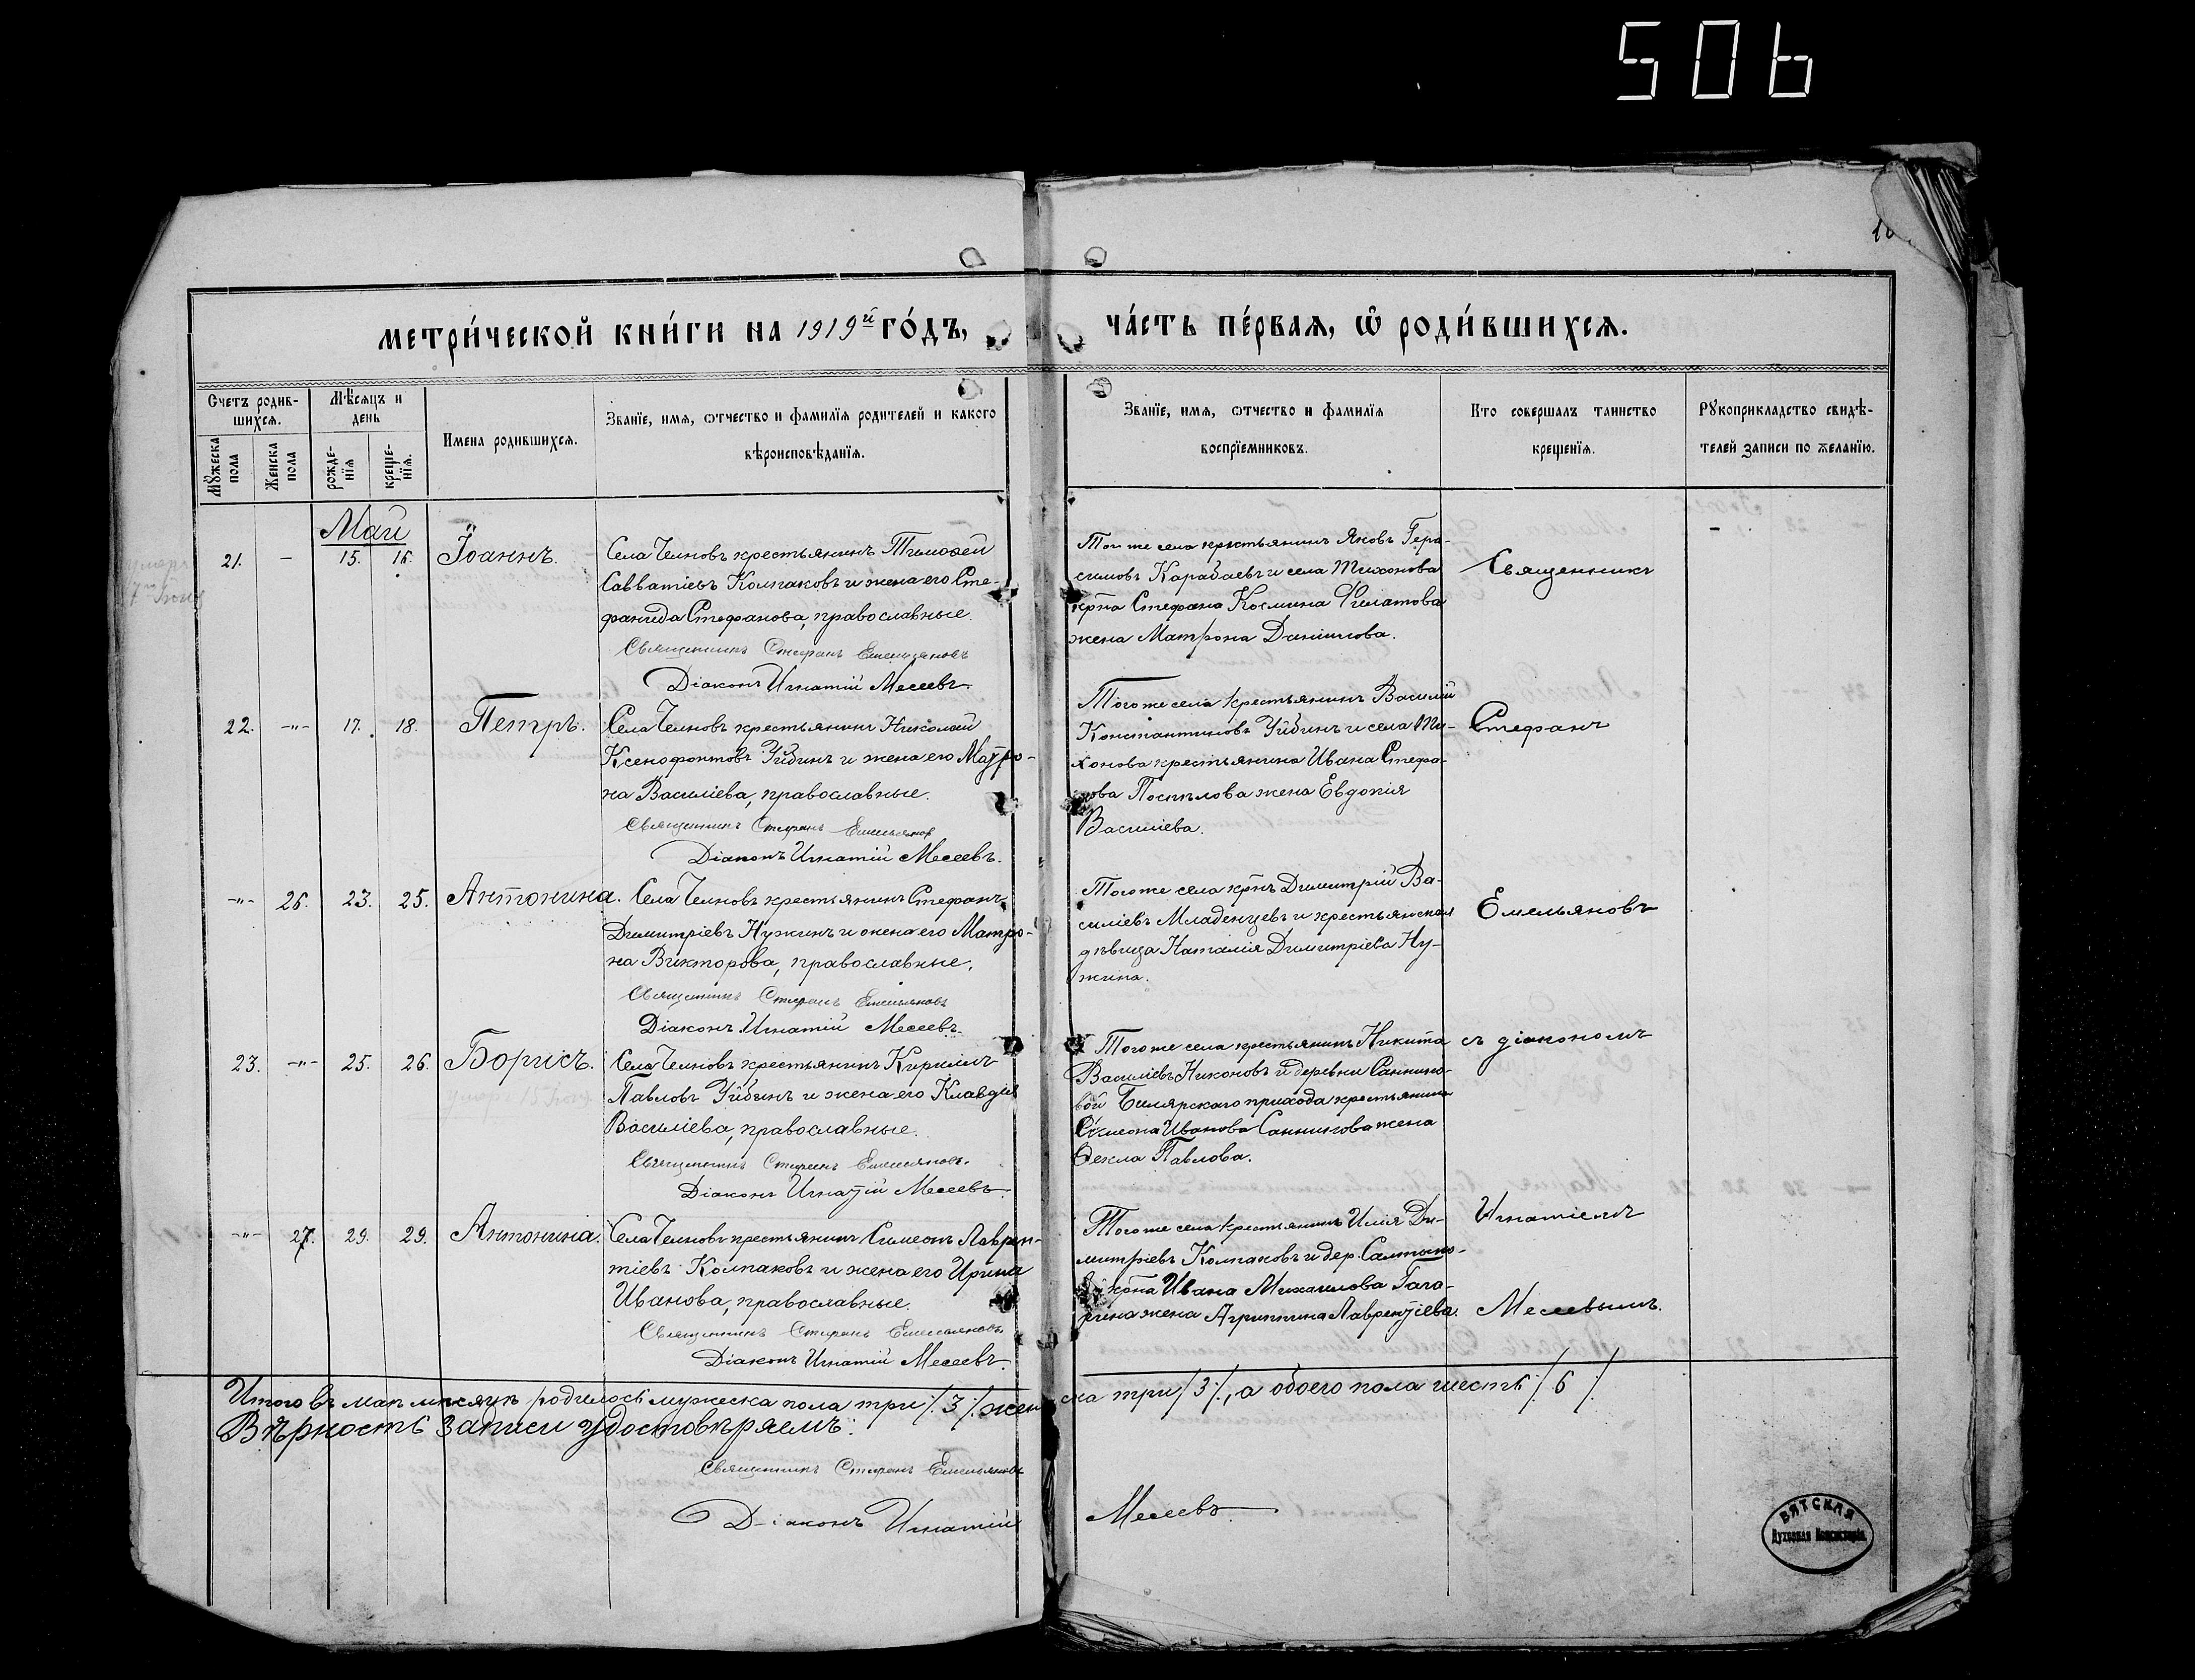 506
метри́ческой кни́ги на 1919й го́дъ,
ча́сть пе́рвая, ѡ҆ роди́вшихсѧ.
Счетъ родив-
шихсѧ.
Мꙋжеска пола
Женска пола
Мѣсѧцъ и
день
рожде-
нїѧ
креще-
нїѧ.
Имена родившихсѧ.
Званїе, имѧ, ѡтчество и фамилїѧ родителей и какого
вѣроисповѣданїѧ.
Званїе, имѧ, ѡтчество и фамилїѧ
воспрїемниковъ.
Кто совершалъ таинство
крещенїѧ.
Рꙋкоприкладство свидѣ-
телей записи по желанїю.
Май
21. — 15. 16. Іоаннъ.
Села Челновъ крестьянинъ Тимофей
Савватіевъ Колпаковъ и жена его Сте-
фанида Стефанова, православные.
Священникъ Стефанъ Емельяновъ
Діаконъ Игнатій
Того же села крестьянинъ Яковъ Гера-
симовъ Карабаевъ и села Тихонова
кр̃на Стефана Космина Филатова
жена Матрона Даниилова.
22. -"- 17. 18. Петръ.
Села Челновъ крестьянинъ Николай
Ксенофонтовъ Уйбинъ и жена его Матро-
на Василіева, православные.
Священникъ Стефанъ Емельяновъ
Діаконъ Игнатій
Того же села крестьянинъ Василій
Константиновъ Уйбинъ и села Ти-
хонова крестьянина Ивана Стефа-
нова Поспѣлова жена Евдокія
Василіева.
-"- 26. 23. 25. Антонина.
Села Челновъ крестьянинъ Стефанъ
Димитріевъ Нужинъ и жена его Матро-
на Викторова, православные.
Священникъ Стефанъ Емельяновъ
Діаконъ Игнатій
Того же села кр̃нъ Димитрій Ва-
силіевъ Младенцевъ и крестьянская
дѣвица Наталія Димитріева Ну-
жина.
23. -"- 25. 26. Борисъ.
Села Челновъ крестьянинъ Кириллъ
Павловъ Уйбинъ и жена его Клавдія
Василіева, православные.
Священникъ Стефанъ Емельяновъ.
Діаконъ Игнатій
Того же села крестьянинъ Никита
Василіевъ Никоновъ и деревни Саннико-
вой Билярскаго прихода крестьянина
Симеона Иванова Санникова жена
Ѳекла Павлова.
-"- 27. 29. 29. Антонина.
Села Челновъ крестьянинъ Симеонъ Лаврен-
тіевъ Колпаковъ и жена его Ирина
Иванова, православные.
Священникъ Стефанъ Емельяновъ
Діаконъ Игнатій
Того же села крестьянинъ Илія Ди-
митріевъ Колпаковъ и дер.
кр̃на Ивана Михаилова Гага-
рина жена Агриппина Лаврентіева.
Священникъ
Стефанъ
Емельяновъ
съ діакономъ
Игнатіемъ
Итого въ маѣ мѣсяцѣ родилось мужеска пола три /. 3 /. женска три /. 3 /., а обоего пола шесть /. 6 /.
Вѣрность записи удостовѣряемъ:
Священникъ Стефанъ Емельяновъ
Діаконъ Игнатій
ВЯТСКАЯ
Духовная Консисторія.